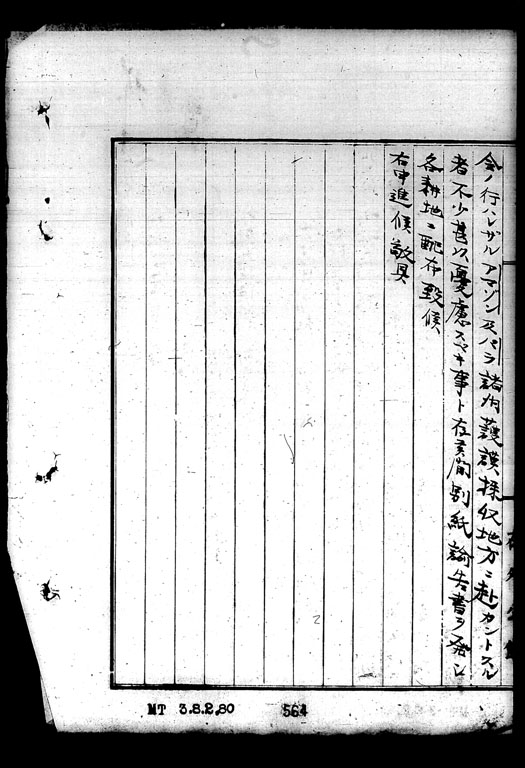 令ノ行ハレサルアマゾン及パラ諸州護謨採収地方ニ赴カントスル
者不少甚以憂慮スヘキ事ト存候間別紙諭告書ヲ発シ
各耕地ニ配布致候
右申進候敬具
MT 3.8.2.80 564